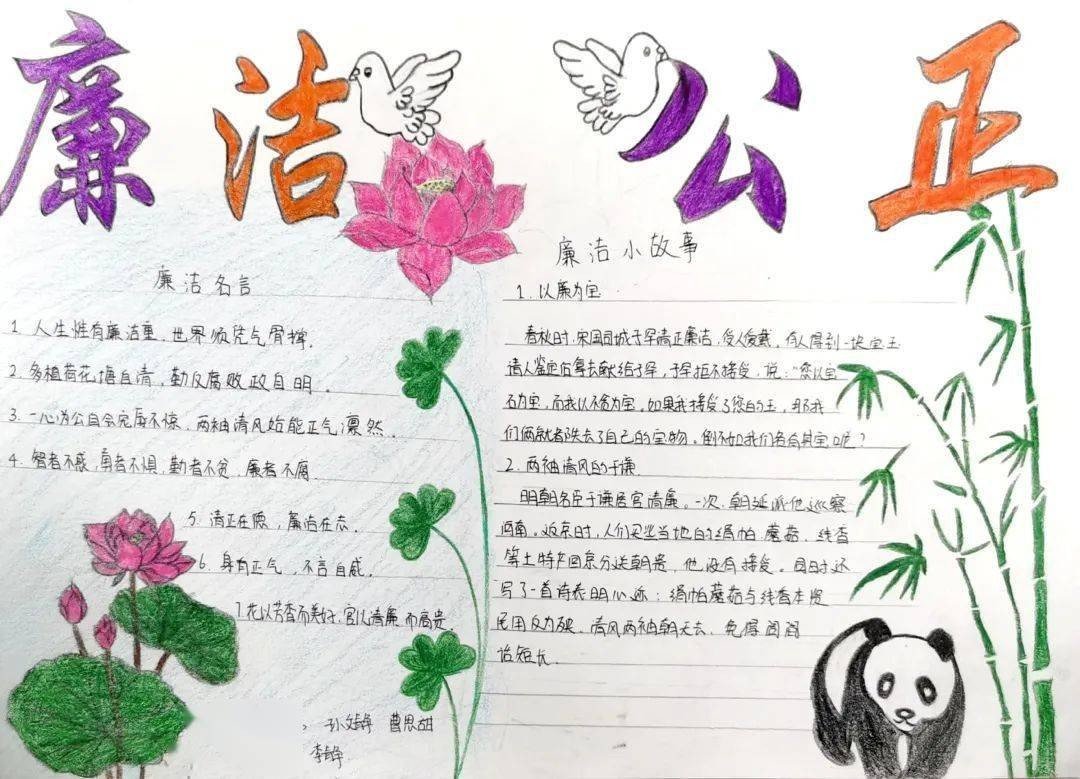 廉洁公正
廉洁名言
1. 人生性有廉洁重,世界须凭气骨撑.
2. 多植荷花塘自清,勤反腐败政自明.
3. 一心为公自会宠辱不惊,两袖清风始能正气凛然.
4. 智者不惑,勇者不惧,勤者不贫,廉者不腐.
5. 清正在德,廉洁在志.
6. 身有正气,不言自威.
7. 花以芳香而美好,官以清廉而高贵.
孙 曹思甜
李
廉洁小故事
1. 以廉为宝
春秋时,宋国司城子罕清正廉洁,受人爱戴,有人得到一块宝玉
请人鉴定后拿去献给子罕,子罕拒不接受,说:"您以宝
石为宝,而我以不贪为宝.如果我接受了您的玉,那我
们俩就都失去了自己的宝物.倒不如我们各有其宝呢?
2. 两袖清风的于谦
明朝名臣于谦居官清廉.一次,朝廷派他巡察
河南.返京时,人们买些当地的绢帕,蘑菇,线香
等土特产回京分送朝贵,他没有接受.同时还
写了一首诗表明心迹:绢帕蘑菇与线香本贤
民用反为殃,清风两袖朝天去,免得闾阎
话短长.